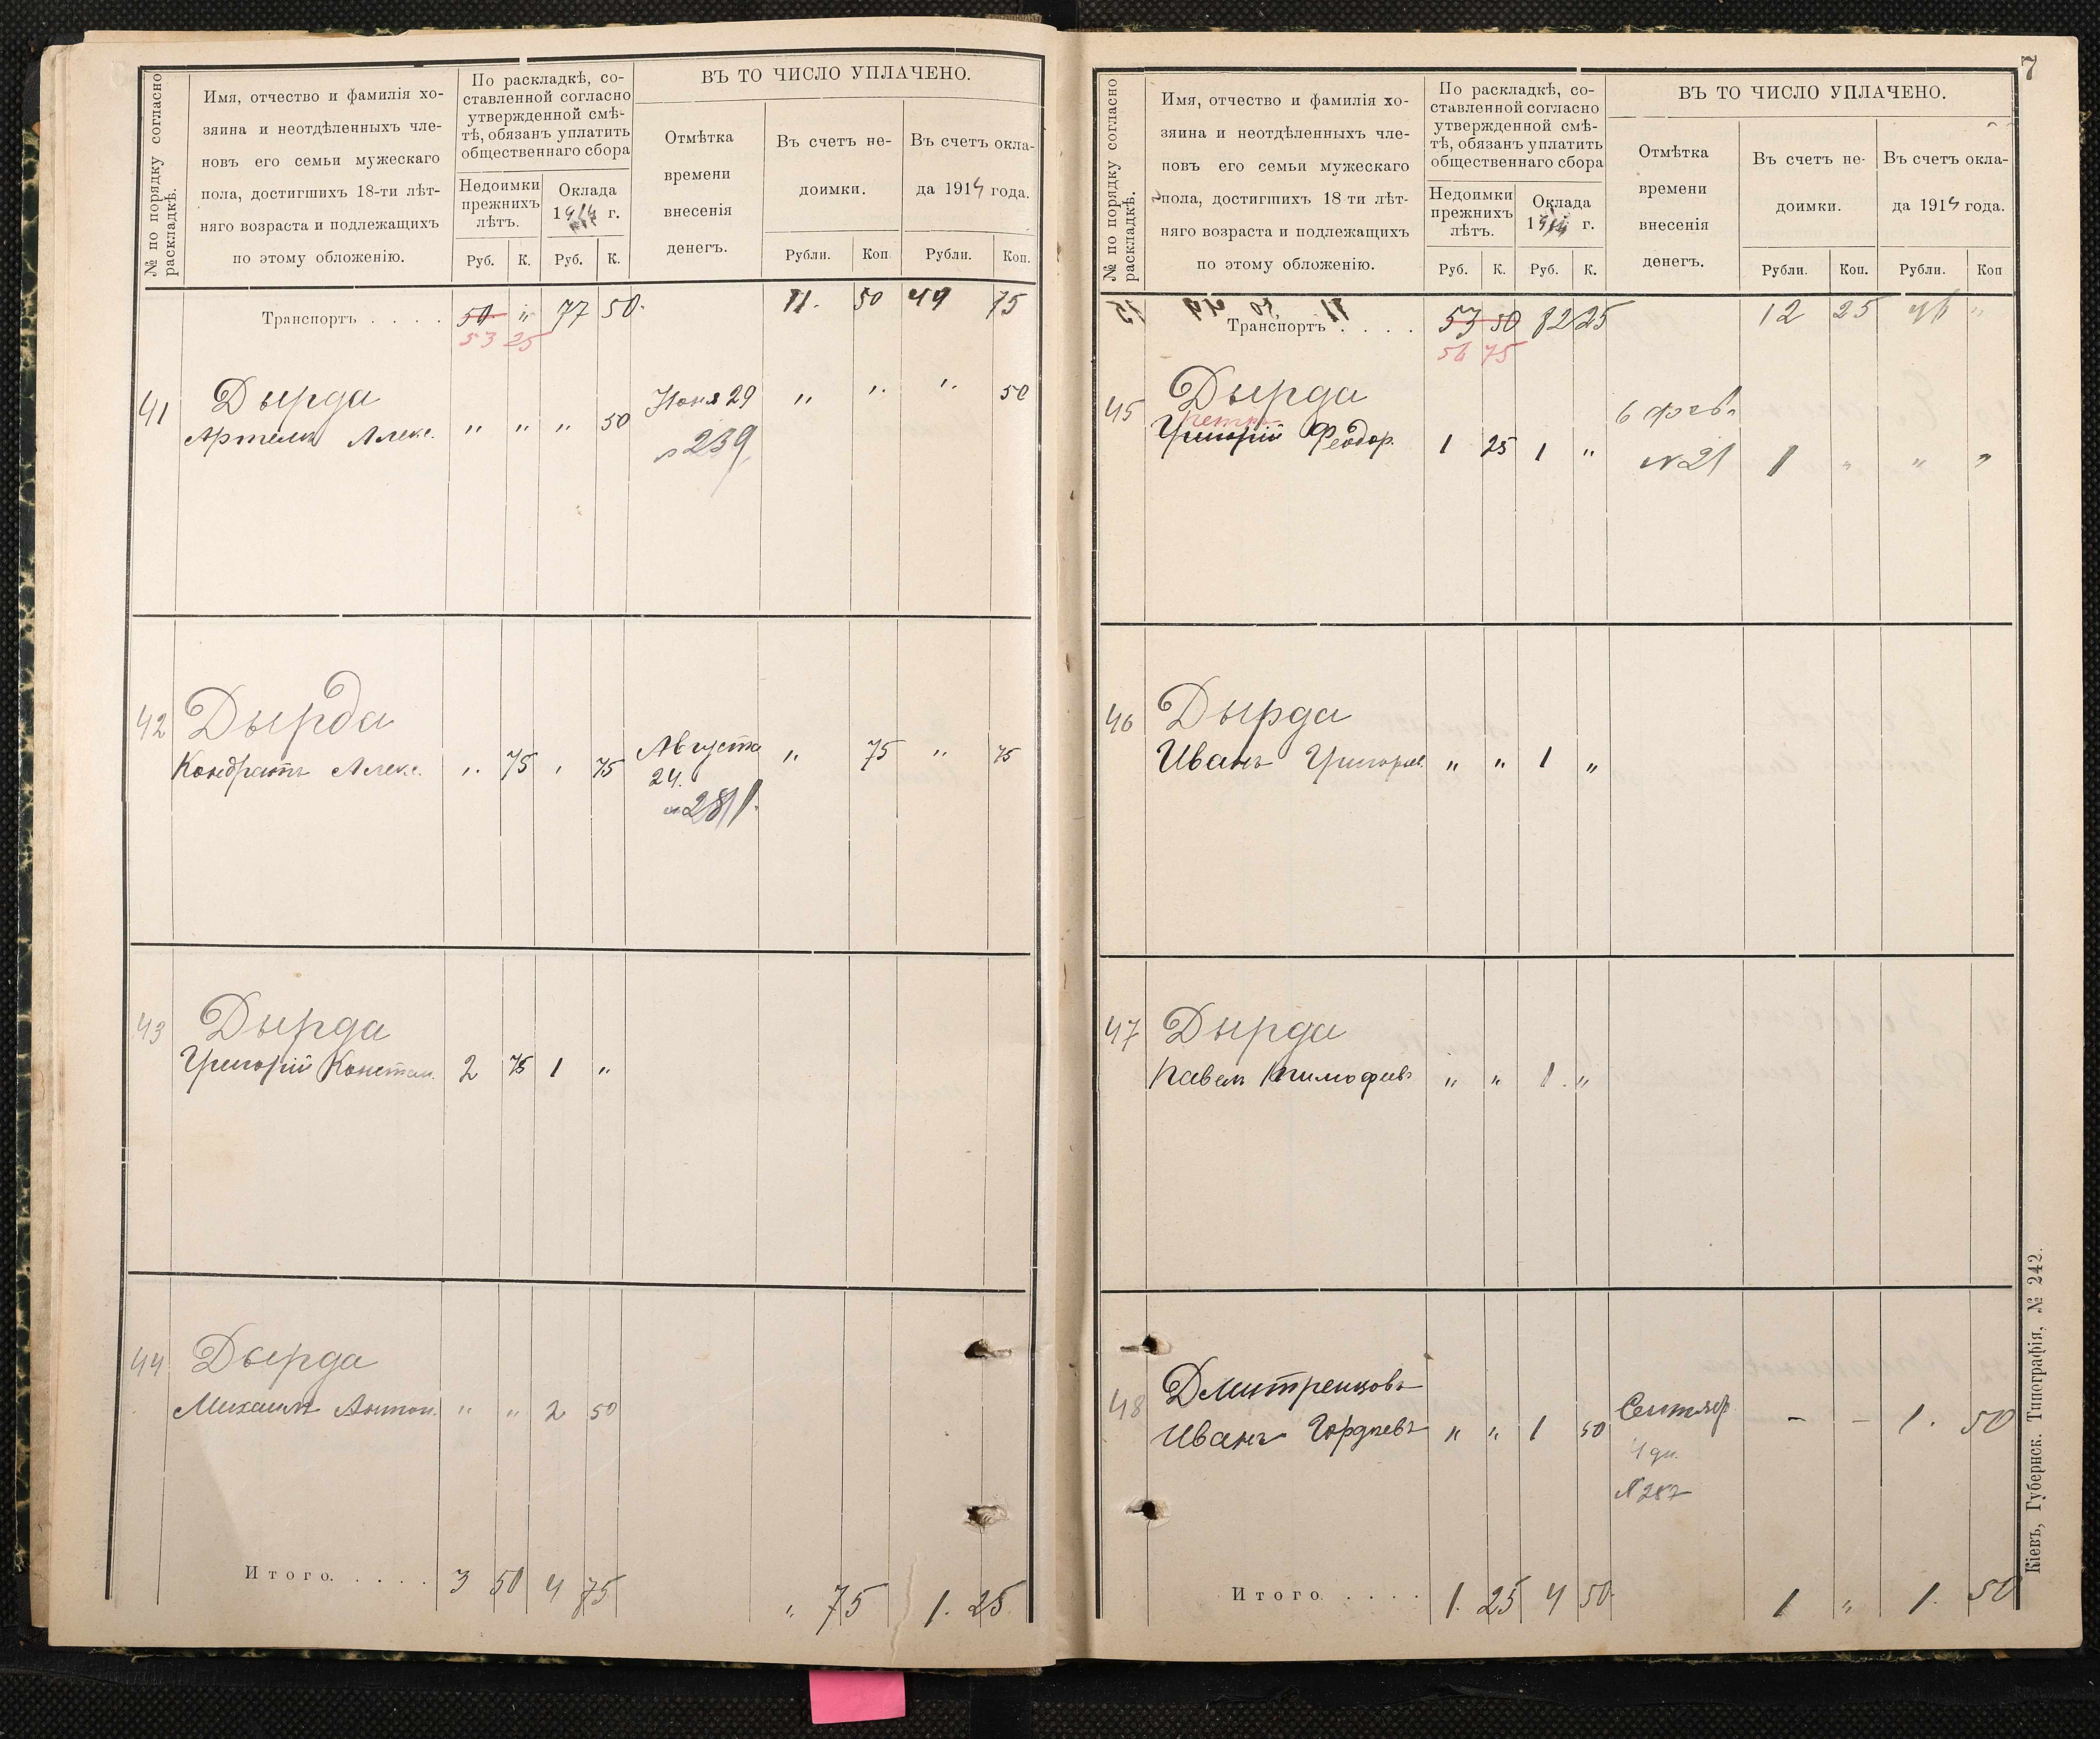 № по порядку согласно
раскладкѣ.
Имя, отчество и фамилія хо-
зяина и неотдѣленныхъ чле-
новъ его семьи мужескаго
пола, достигшихъ 18-ти лѣт-
няго возраста и подлежащихъ
по этому обложенію.
По раскладкѣ, со-
ставленной согласно
утвержденной смѣ-
тѣ, обязанъ уплатить
общественнаго сбора
Недоимки
прежнихъ
лѣтъ.
Оклада
1914 г.
Руб. К. Руб. К.
ВЪ ТО ЧИСЛО УПЛАЧЕНО.
Отмѣтка
времени
внесенія
денегъ.
Въ счетъ не-
доимки.
Въ счетъ окла-
да 1914 года.
Рубли. Коп. Рубли. Коп.
Транспортъ . . . . 50 " 77 50. 11. 50 49 75
53 25
41 Дырда
Артемъ Алекс. " " " 50 Іюня 29 " " " 50
№ 239
42 Дырда
Кондратъ Алекс. " 75 " 75 Августа " 75 " 75
24.
№ 281
43 Дырда
Григорій Констан. 2 75 1 "
44 Дырда
Михаилъ Антон. " " 2 50
Итого. . . . . 3 50 4 75 " 75 1. 25
7
№ по порядку согласно
раскладкѣ.
Имя, отчество и фамилія хо-
зяина и неотдѣленныхъ чле-
новъ его семьи мужескаго
пола, достигшихъ 18 ти лѣт-
няго возраста и подлежащихъ
по этому обложенію.
По раскладкѣ, со-
ставленной согласно
утвержденной смѣ-
тѣ, обязанъ уплатить
общественнаго сбора
Недоимки
прежнихъ
лѣтъ.
Оклада
1914 г.
Руб. К. Руб. К.
ВЪ ТО ЧИСЛО УПЛАЧЕНО.
Отмѣтка
времени
внесенія
денегъ.
Въ счетъ не-
доимки.
Въ счетъ окла-
да 1914 года.
Рубли. Коп. Рубли. Коп
Транспортъ . . . . 53 50 82 25 12 25 "
56 75
45 Дырда
Петръ
Григорій Феодор. 1 25 1 " 6 февр.
№ 21 1 " " "
46 Дырда
Иванъ Григорьев. " " 1 "
47 Дырда
Павелъ Тимофеевъ " " 1. "
48 Дмитренковъ
Иванъ Гордѣевъ " " 1 50 Сентябр. - - 1. 50
4 дн.
№ 287
Итого. . . . . 1. 25 4 50. 1 " 1. 50
Кіевъ, Губернск. Типографія, № 242.